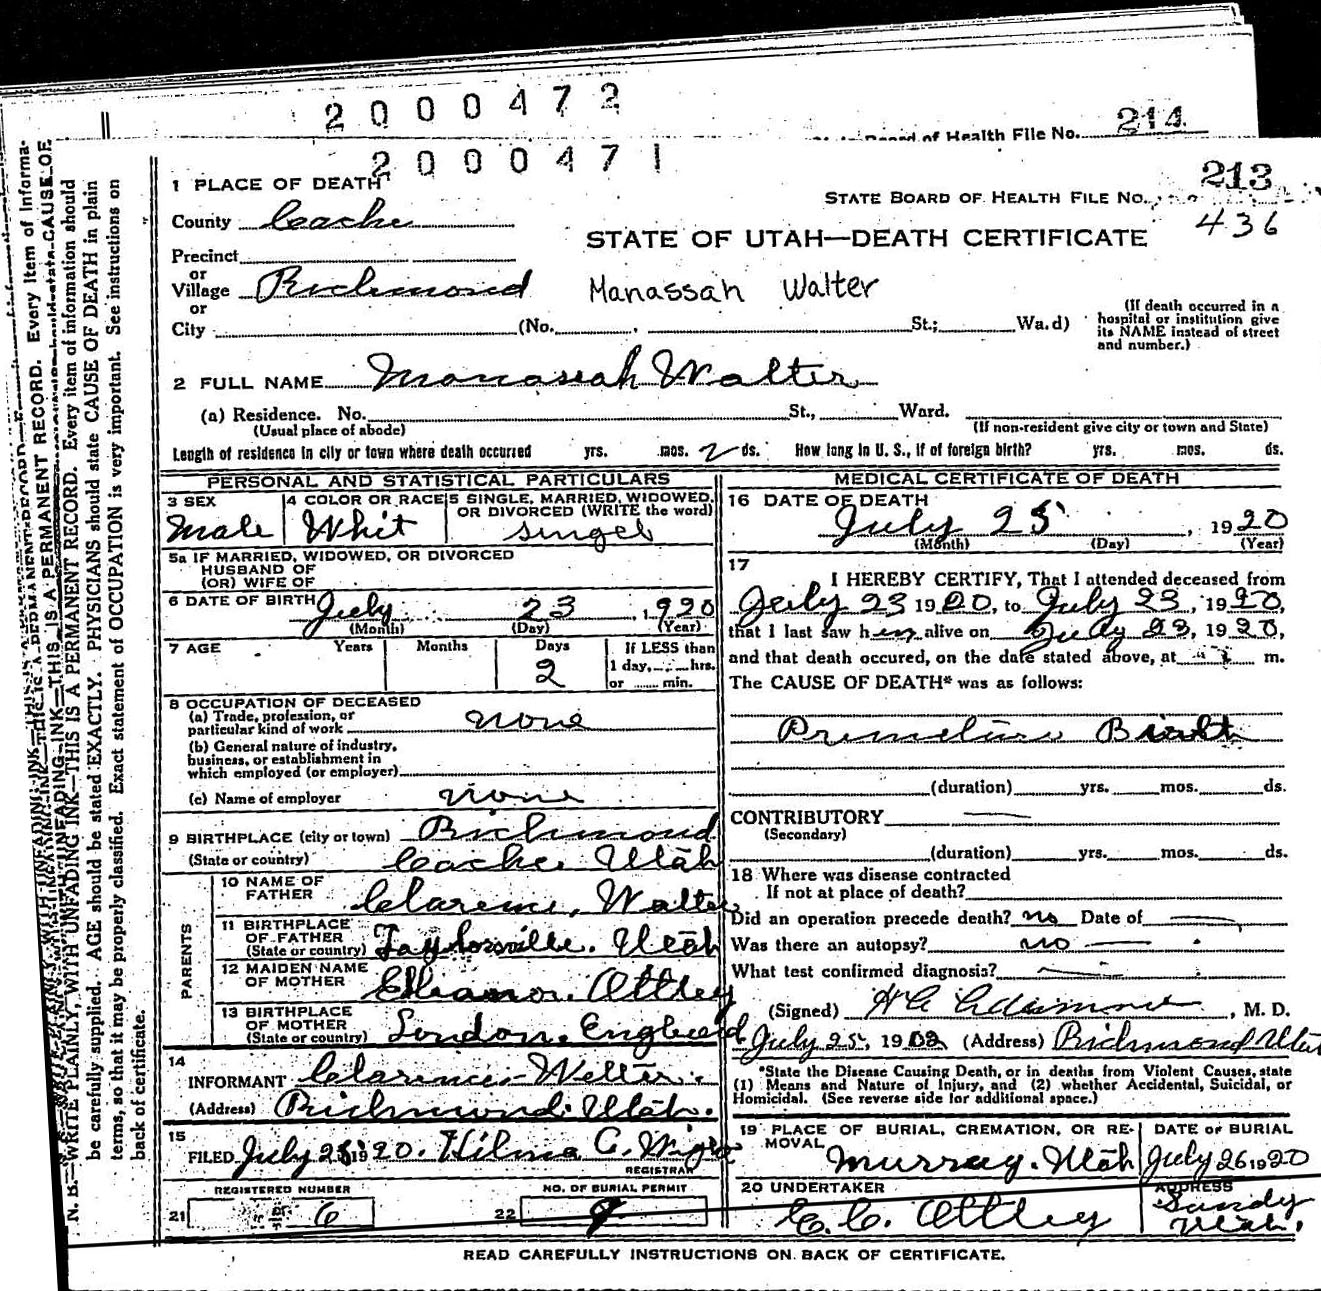 2000472
State Board of Health File No. 214
2000471
213
1 PLACE OF DEATH
STATE BOARD OF HEALTH FILE No.
436
County Cache
STATE OF UTAH—DEATH CERTIFICATE
Precinct
or
Village Richmond
Manassah Walter
or
City (No. St.; Wa.d)
(If death occurred in a
hospital or institution give
its NAME instead of street
and number.)
2 FULL NAME Manassah Walter
(a) Residence. No. St., Ward.
(Usual place of abode)
(If non-resident give city or town and State)
Length of residence in city or town where death occurred yrs. mos. 2 ds. How long in U. S., if of foreign birth? yrs. mos. ds.
PERSONAL AND STATISTICAL PARTICULARS
3 SEX
Male
4 COLOR OR RACE
Whit
5 SINGLE, MARRIED, WIDOWED,
OR DIVORCED (WRITE the word)
singel
5a IF MARRIED, WIDOWED, OR DIVORCED
HUSBAND OF
(OR) WIFE OF
6 DATE OF BIRTH July 23, 1920
(Month) (Day) (Year)
7 AGE Years Months Days If LESS than
2 1 day, hrs.
or min.
8 OCCUPATION OF DECEASED
(a) Trade, profession, or
particular kind of work none
(b) General nature of industry,
business, or establishment in
which employed (or employer)
(c) Name of employer none
9 BIRTHPLACE (city or town) Richmond
(State or country) Cache Utah
PARENTS
10 NAME OF
FATHER Clarence Walter
11 BIRTHPLACE
OF FATHER
(State or country) Taylorsville. Utah
12 MAIDEN NAME
OF MOTHER Elleanor Ottley
13 BIRTHPLACE
OF MOTHER
(State or country) London, England
14
INFORMANT Clarence Walter
(Address) Richmond Utah.
15
FILED July 25 1920. Hilma C.
REGISTRAR
REGISTERED NUMBER
21 6
NO. OF BURIAL PERMIT
22 9
MEDICAL CERTIFICATE OF DEATH
16 DATE OF DEATH
July 25, 1920
(Month) (Day) (Year)
17
I HEREBY CERTIFY, That I attended deceased from
July 23 1920, to July 23, 1920,
that I last saw him alive on July 23, 1920,
and that death occured, on the date stated above, at m.
The CAUSE OF DEATH* was as follows:
Premature Birth
(duration) yrs. mos. ds.
CONTRIBUTORY
(Secondary)
(duration) yrs. mos. ds.
18 Where was disease contracted
If not at place of death?
Did an operation precede death? no Date of
Was there an autopsy? no
What test confirmed diagnosis?
(Signed) , M. D.
July 25, 19 (Address) Richmond Utah
*State the Disease Causing Death, or in deaths from Violent Causes, state
(1) Means and Nature of Injury, and (2) whether Accidental, Suicidal, or
Homicidal. (See reverse side for additional space.)
19 PLACE OF BURIAL, CREMATION, OR RE-
MOVAL
Murray. Utah
DATE OF BURIAL
July 26 1920
20 UNDERTAKER
C. C. Ottley
ADDRESS
Sandy
Utah.
READ CAREFULLY INSTRUCTIONS ON BACK OF CERTIFICATE.
N. B.—WRITE PLAINLY, WITH UNFADING INK—THIS IS A PERMANENT RECORD. Every item of information should
be carefully supplied. AGE should be stated EXACTLY. PHYSICIANS should state CAUSE OF DEATH in plain
terms, so that it may be properly classified. Exact statement of OCCUPATION is very important. See instructions on
back of certificate.